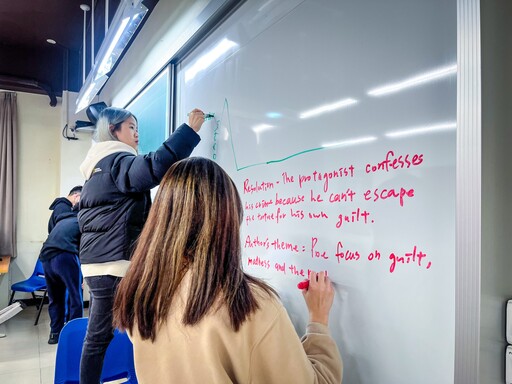 Resolution - The protagonist confesses
his crime because he can't escape
the torture for his own guilt.
Author's theme: Poe focus on guilt,
madness and the